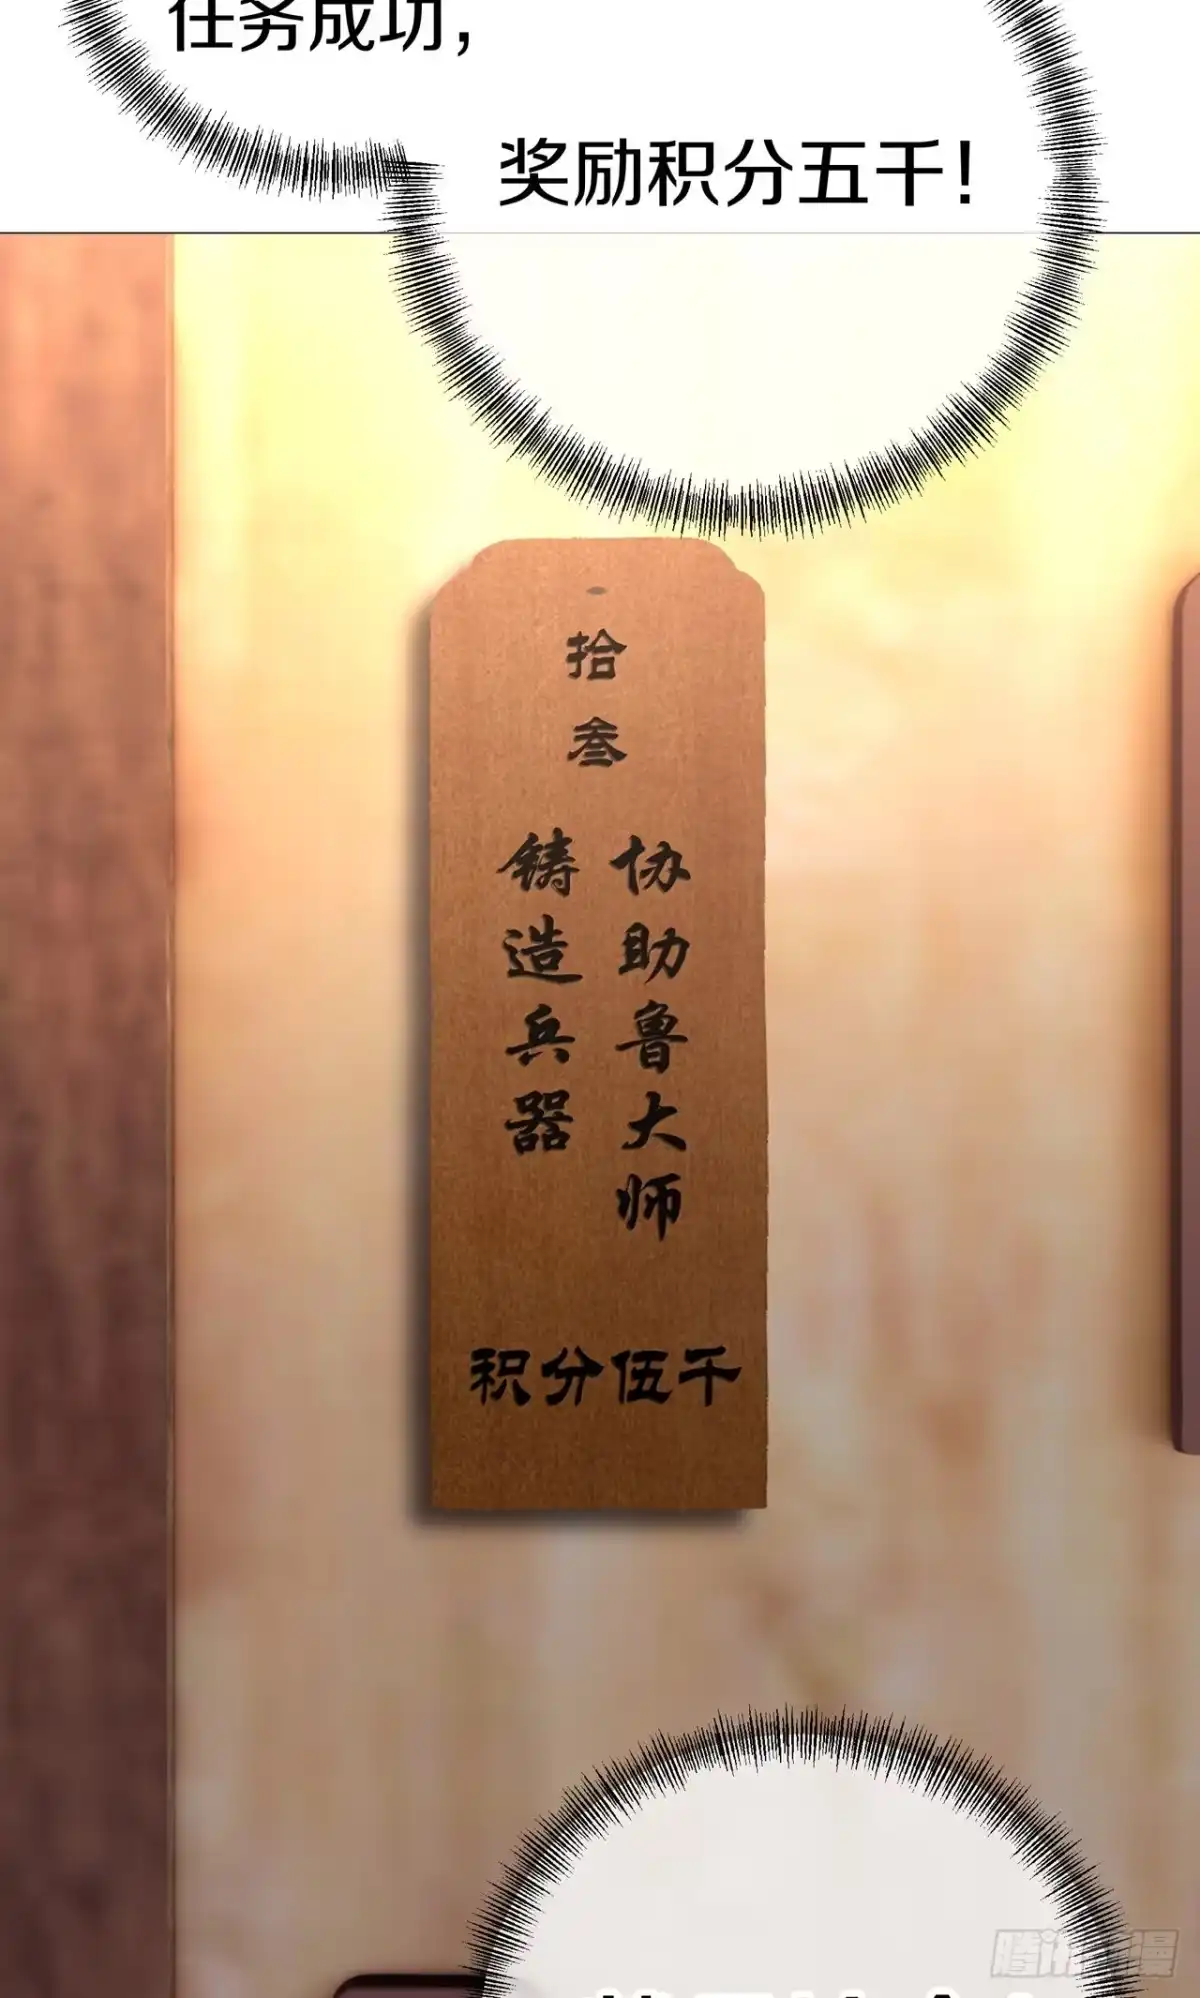 任务成功，
奖励积分五千！
拾
叁
协助鲁大师
铸造兵器
积分伍千
腾讯动漫